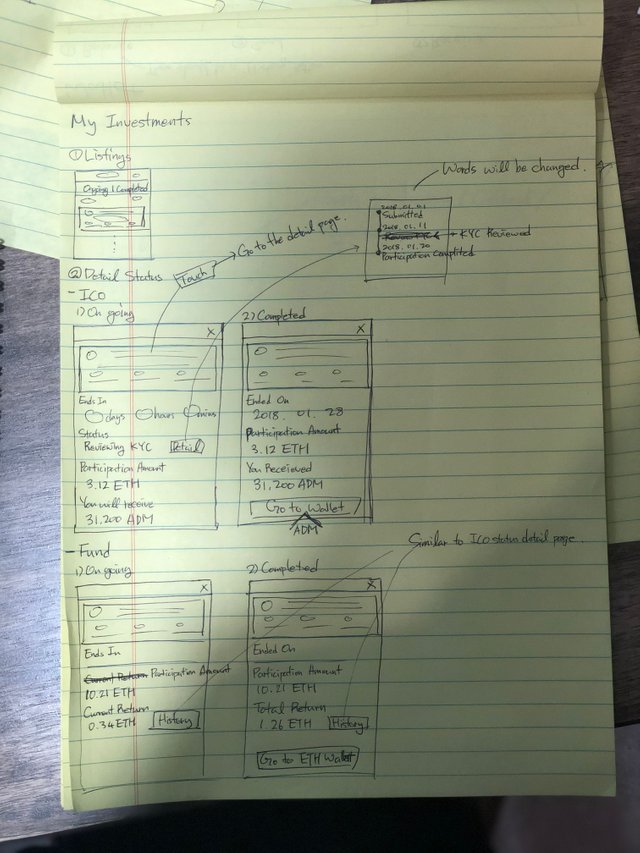 My Investments
① Listings
Ongoing | Completed
Words will be changed.
2018.01.01
Submitted
2018.01.11
KYC Reviewed
2018.01.20
Participation Completed
Go to the detail page.
Touch
② Detail Status
- ICO
1) On going
X
Ends In
days hours mins
Status
Reviewing KYC Detail
Participation Amount
3.12 ETH
You will receive
31,200 ADM
2) Completed
X
Ended On
2018. 01. 28
Participation Amount
3.12 ETH
You Receieved
31,200 ADM
Go to Wallet
ADM
- Fund
Similar to ICO status detail page.
1) On going
X
Ends In
Current Return Participation Amount
10.21 ETH
Current Return
0.34 ETH History
2) Completed
X
Ended On
Participation Amount
10.21 ETH
Total Return
1.26 ETH History
Go to ETH Wallet